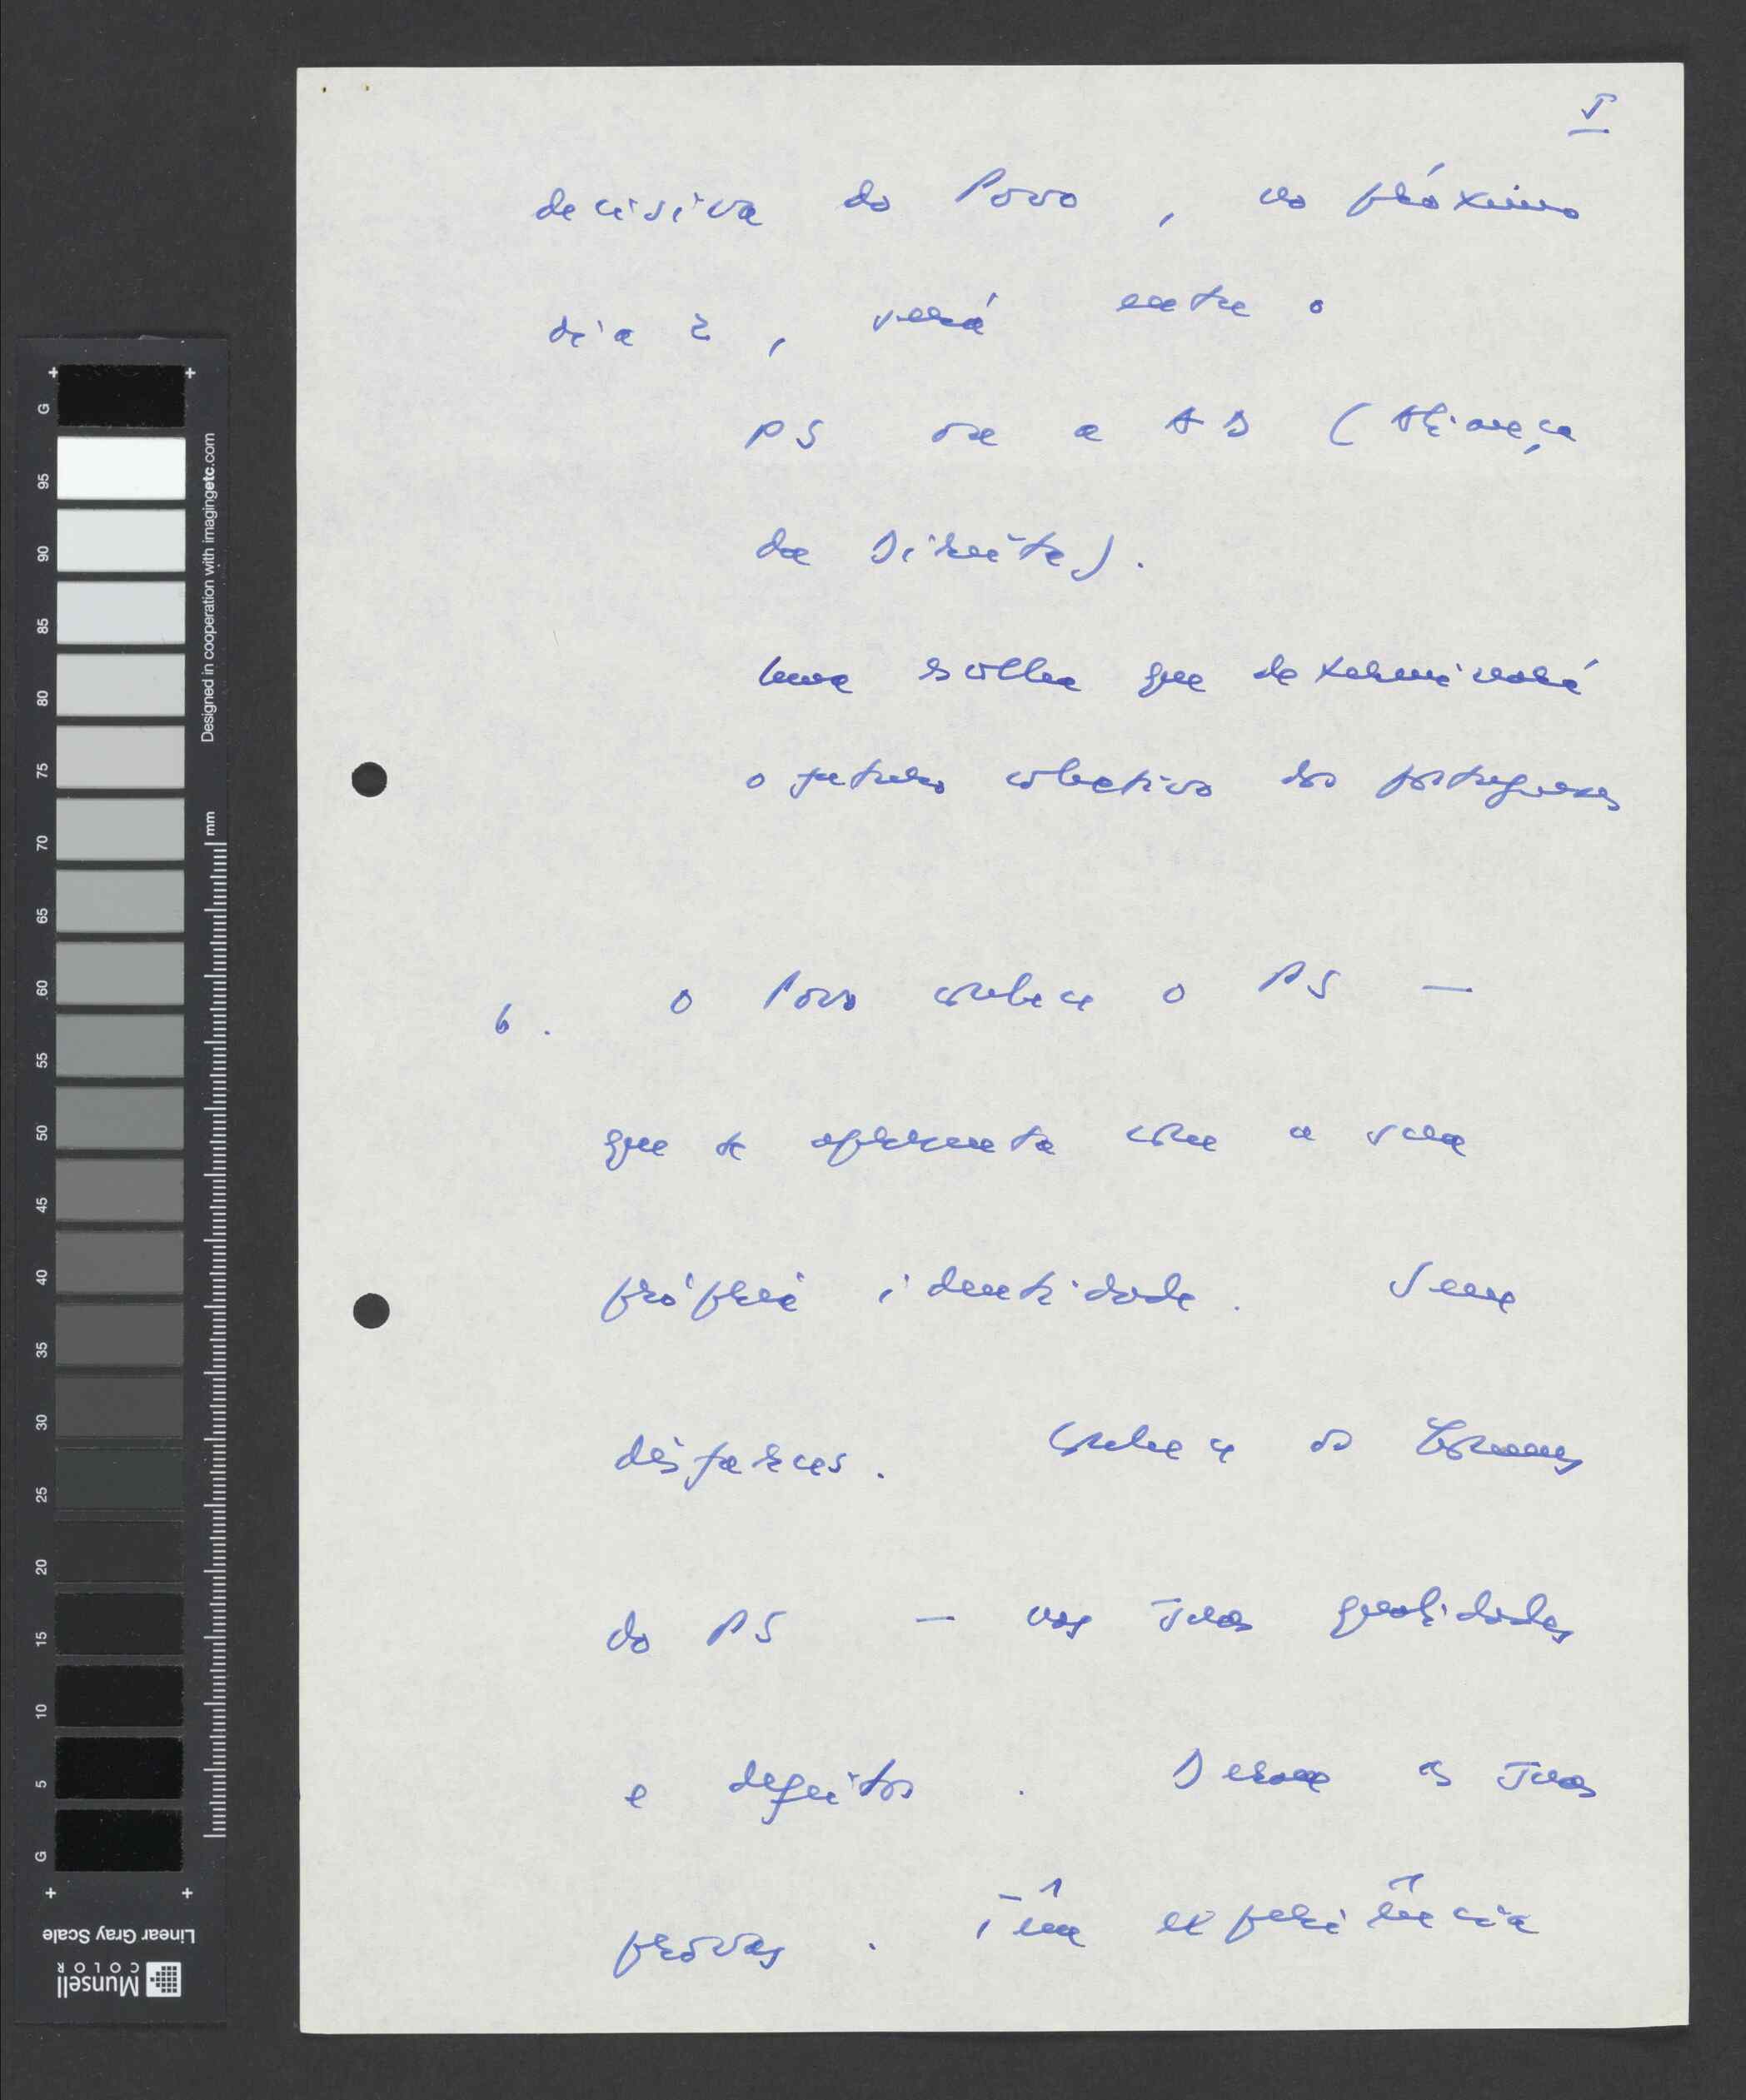 5
decisiva do Povo, no próximo
dia 2, será entre o
PS ou a AD (Aliança
da Direita).
Uma escolha que determinará
o futuro colectivo dos portugueses
6. O Povo conhece o PS —
que se apresenta com a sua
própria identidade. Sem
disfarces. Conhece os Homens
do PS — nas suas qualidades
e defeitos. Deram as suas
provas. Têm experiência
G 95 90 85 80 75 70 65 60 55 50 45 40 35 30 25 20 15 10 5 G
Designed in cooperation with imagingetc.com
mm
Linear Gray Scale
Munsell
COLOR